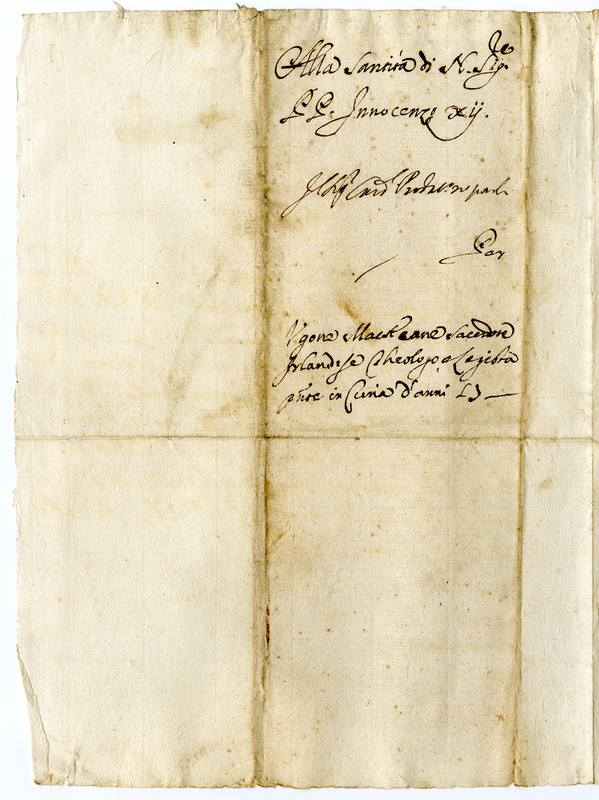 Alla Santità di N. Sig.re
PP. Innocenzo xij.
Card. Prodat.
Per
Ugone Mackeane Sacerdote
Irlandese Theologo e Legista
pnte in Curia d'anni